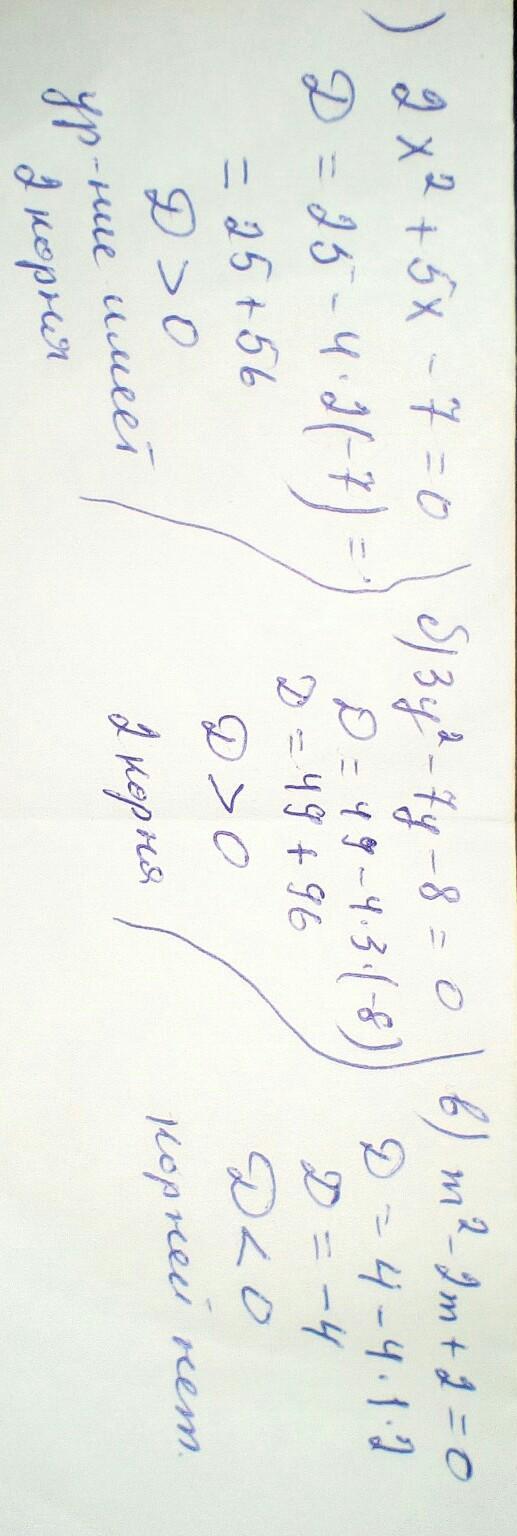 ) 2x² + 5x - 7 = 0
D = 25 - 4·2(-7) =
= 25 + 56
D > 0
ур-ние имеет
2 корня
б) 3y² - 7y - 8 = 0
D = 49 - 4·3·(-8)
D = 49 + 96
D > 0
2 корня
в) m² - 2m + 2 = 0
D = 4 - 4·1·2
D = -4
D < 0
корней нет.